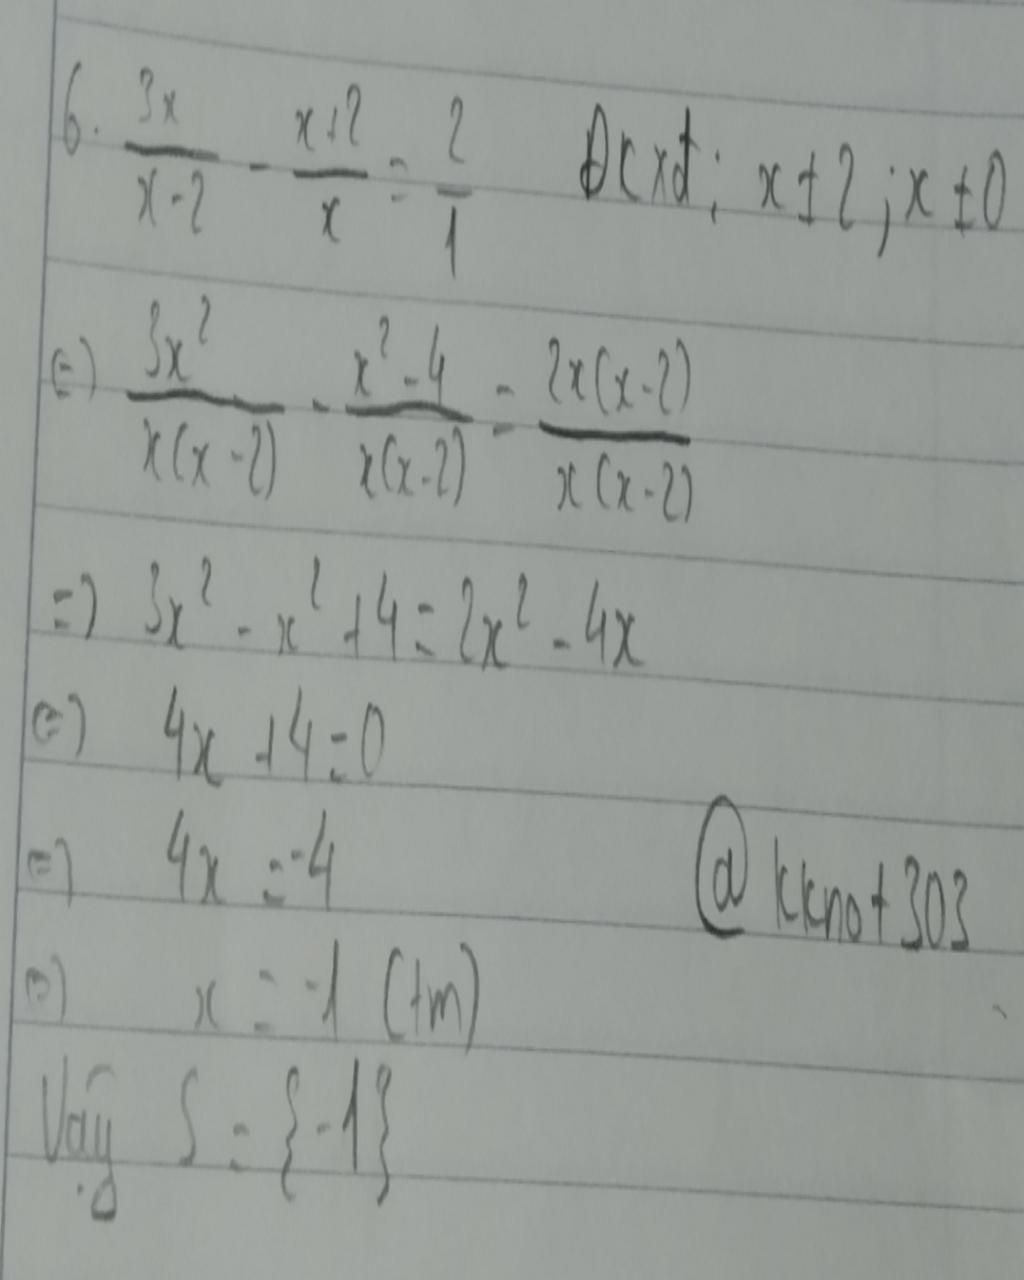 6. 3x/(x-2) - (x+2)/x = 2/1 Đkxđ: x ≠ 2; x ≠ 0
(=) 3x²/(x(x-2)) - (x²-4)/(x(x-2)) = 2x(x-2)/(x(x-2))
=) 3x² - x² + 4 = 2x² - 4x
(=) 4x + 4 = 0
=) 4x = -4
@kknot303
(=) x = -1 (tm)
Vậy S = {-1}